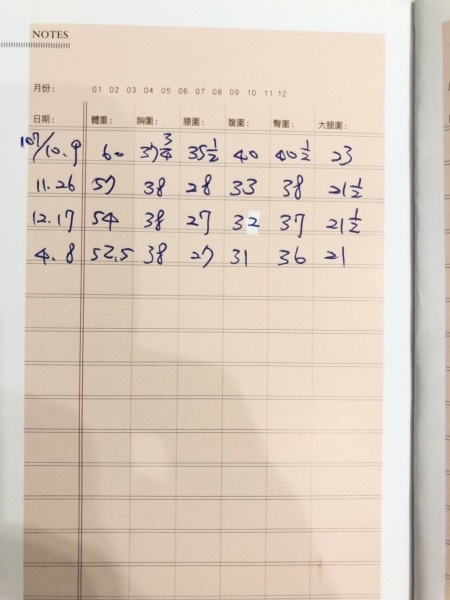 NOTES
月份: 01 02 03 04 05 06 07 08 09 10 11 12
日期: 體重: 胸圍: 腰圍: 腹圍: 臀圍: 大腿圍:
107/10.9 60 37 3/4 35 1/2 40 40 1/2 23
11.26 57 38 28 33 38 21 1/2
12.17 54 38 27 32 37 21 1/2
4.8 52.5 38 27 31 36 21